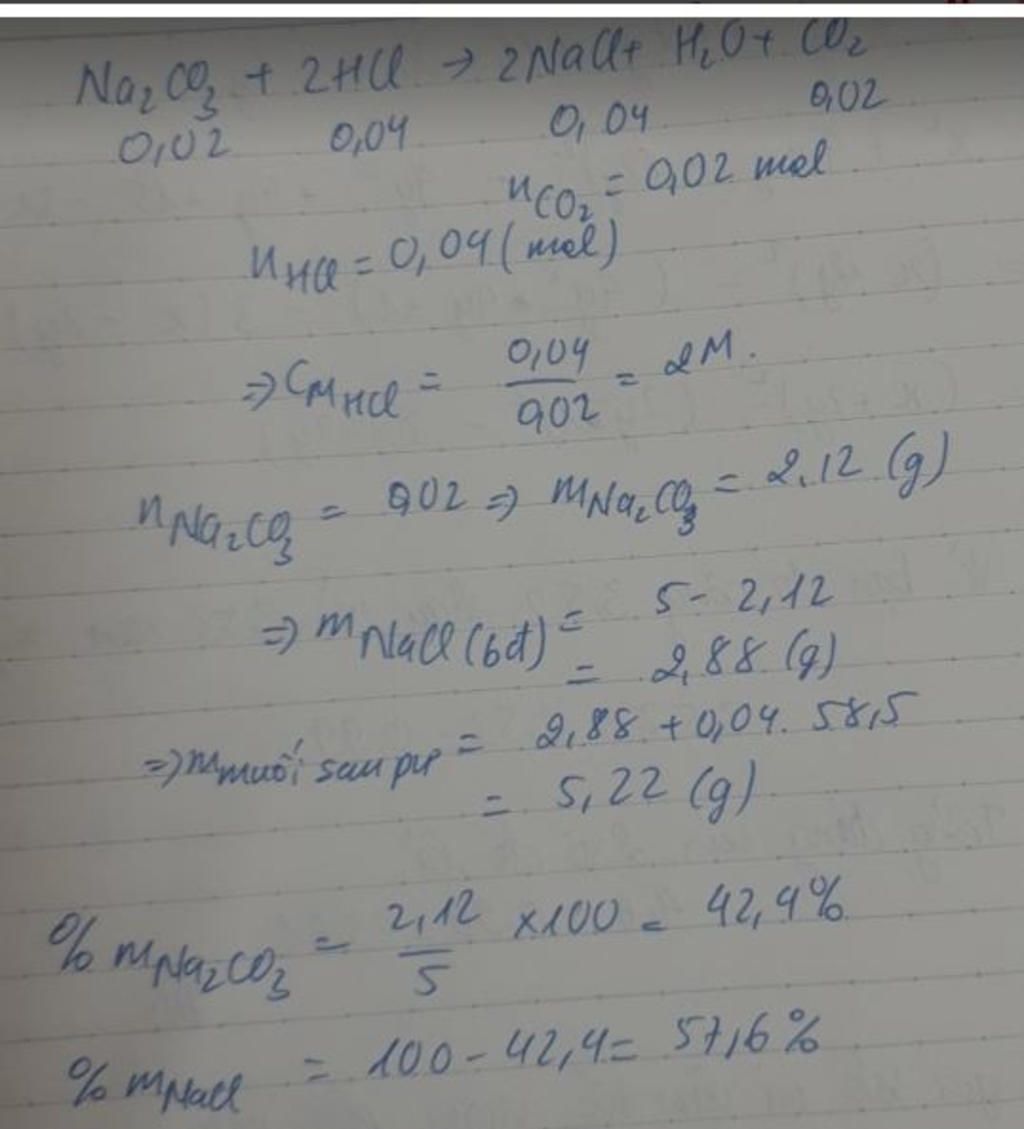 Na₂CO₃ + 2HCl → 2NaCl + H₂O + CO₂
0,02 0,04 0,04 0,02
nCO₂ = 0,02 mol
nHCl = 0,04 (mol)
⇒ CM HCl = 0,04 / 0,02 = 2M.
nNa₂CO₃ = 0,02 ⇒ mNa₂CO₃ = 2,12 (g)
⇒ mNaCl (bđ) = 5 - 2,12
= 2,88 (g)
⇒ mmuối sau pư = 2,88 + 0,04. 58,5
= 5,22 (g)
% mNa₂CO₃ = 2,12 / 5 ×100 = 42,4%
% mNaCl = 100 - 42,4 = 57,6%